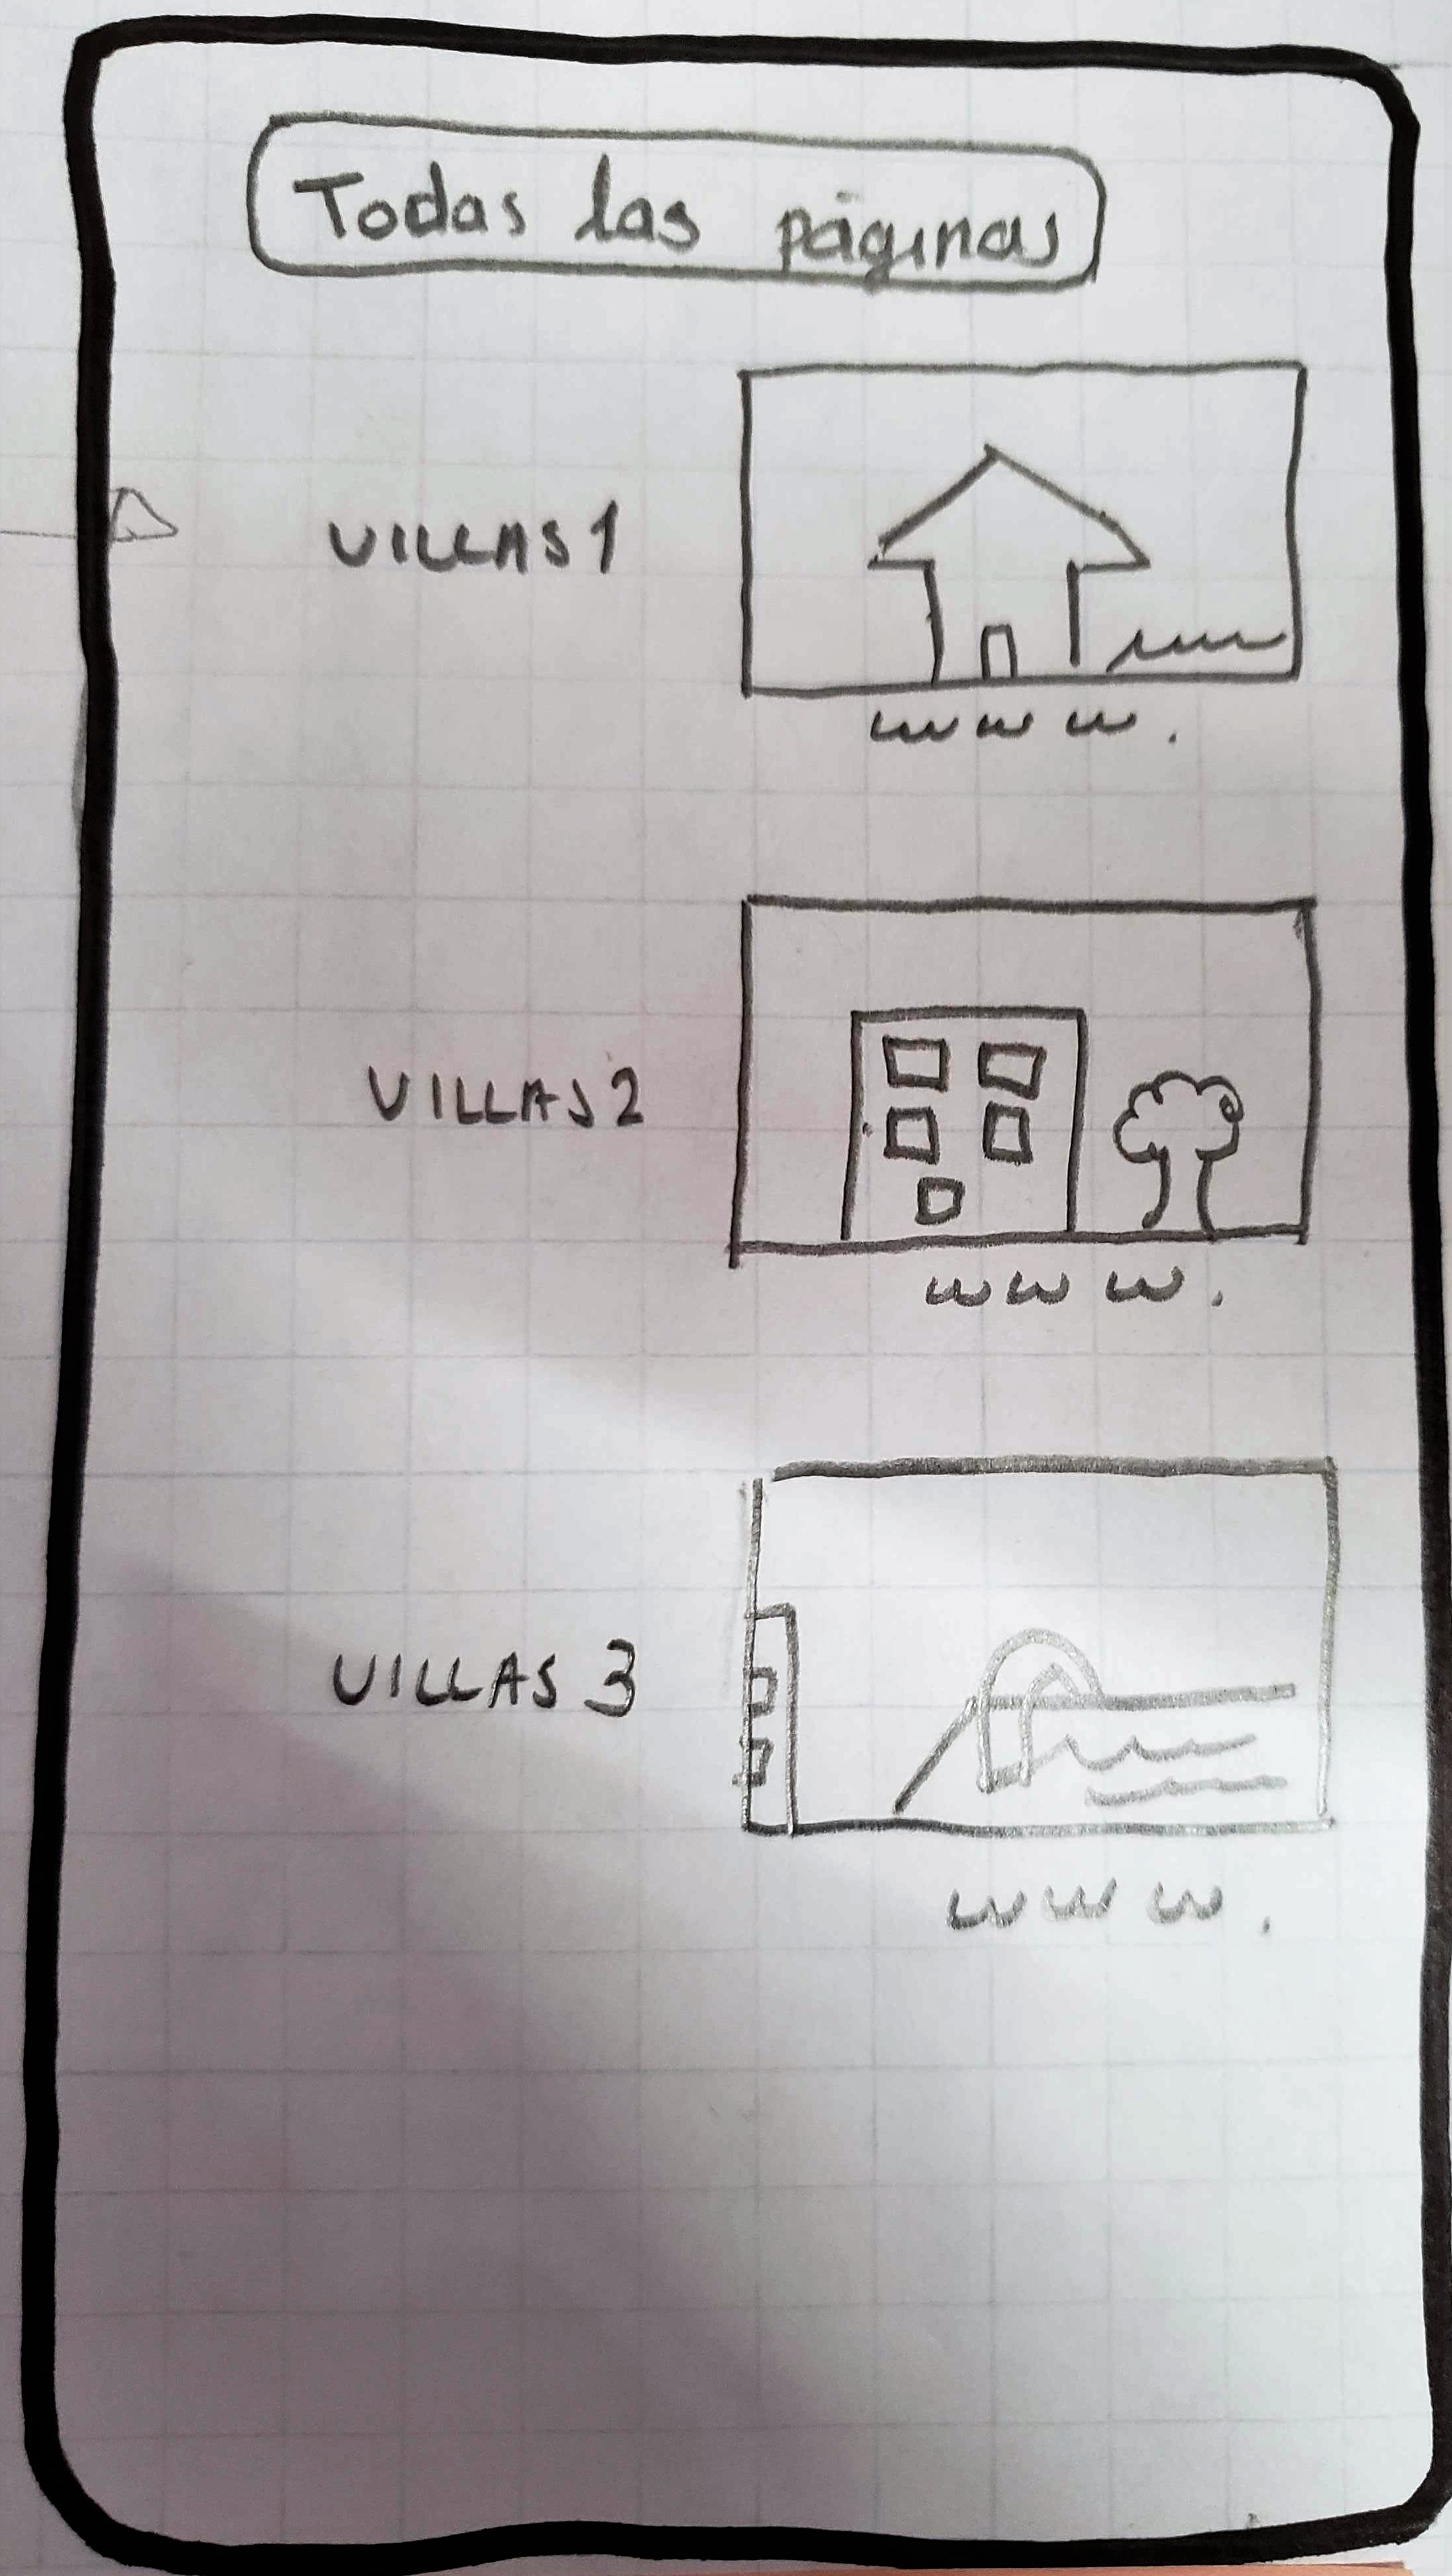 Todas las páginas
VILLAS 1
www.
VILLAS 2
www.
VILLAS 3
www.